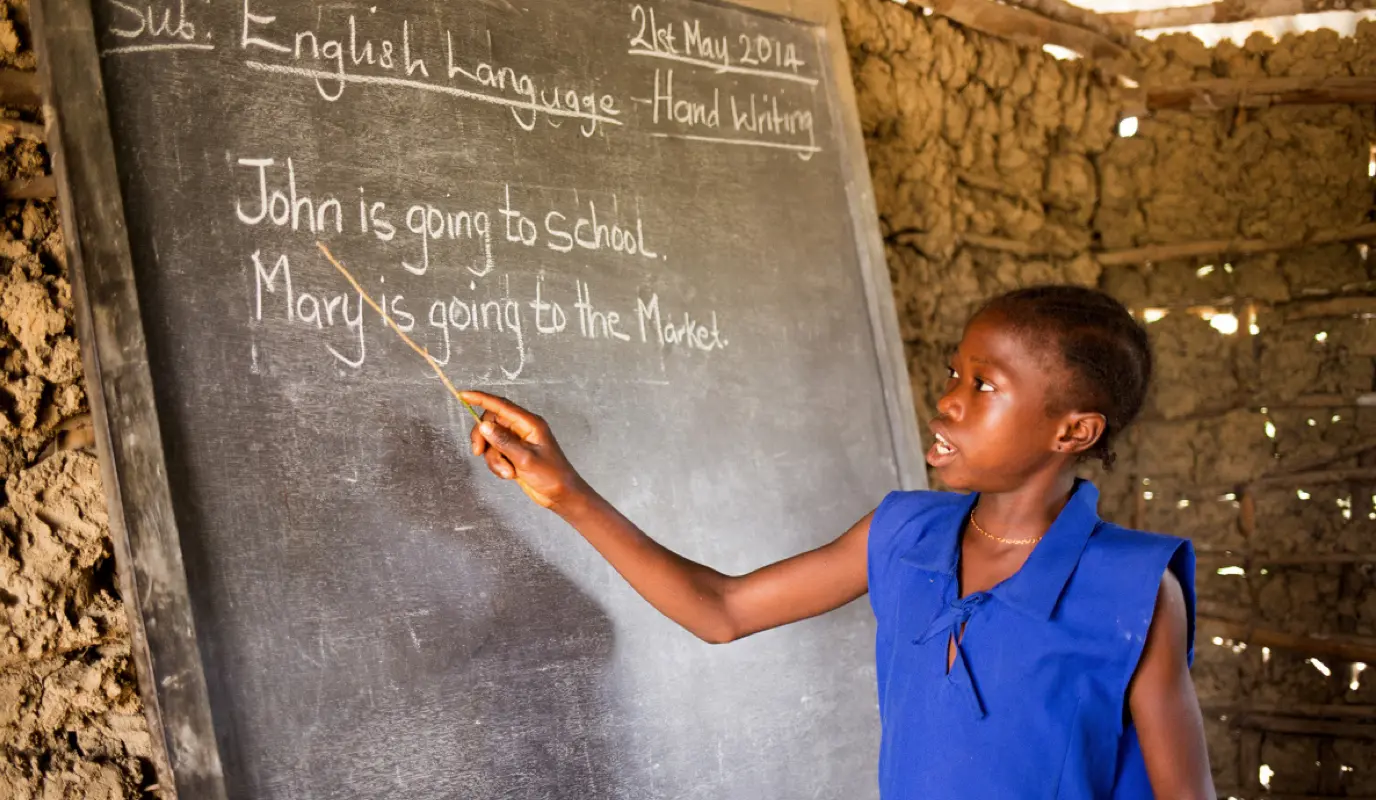 Sub: English Language 21st May 2014
- Hand Writing
John is going to School.
Mary is going to the Market.